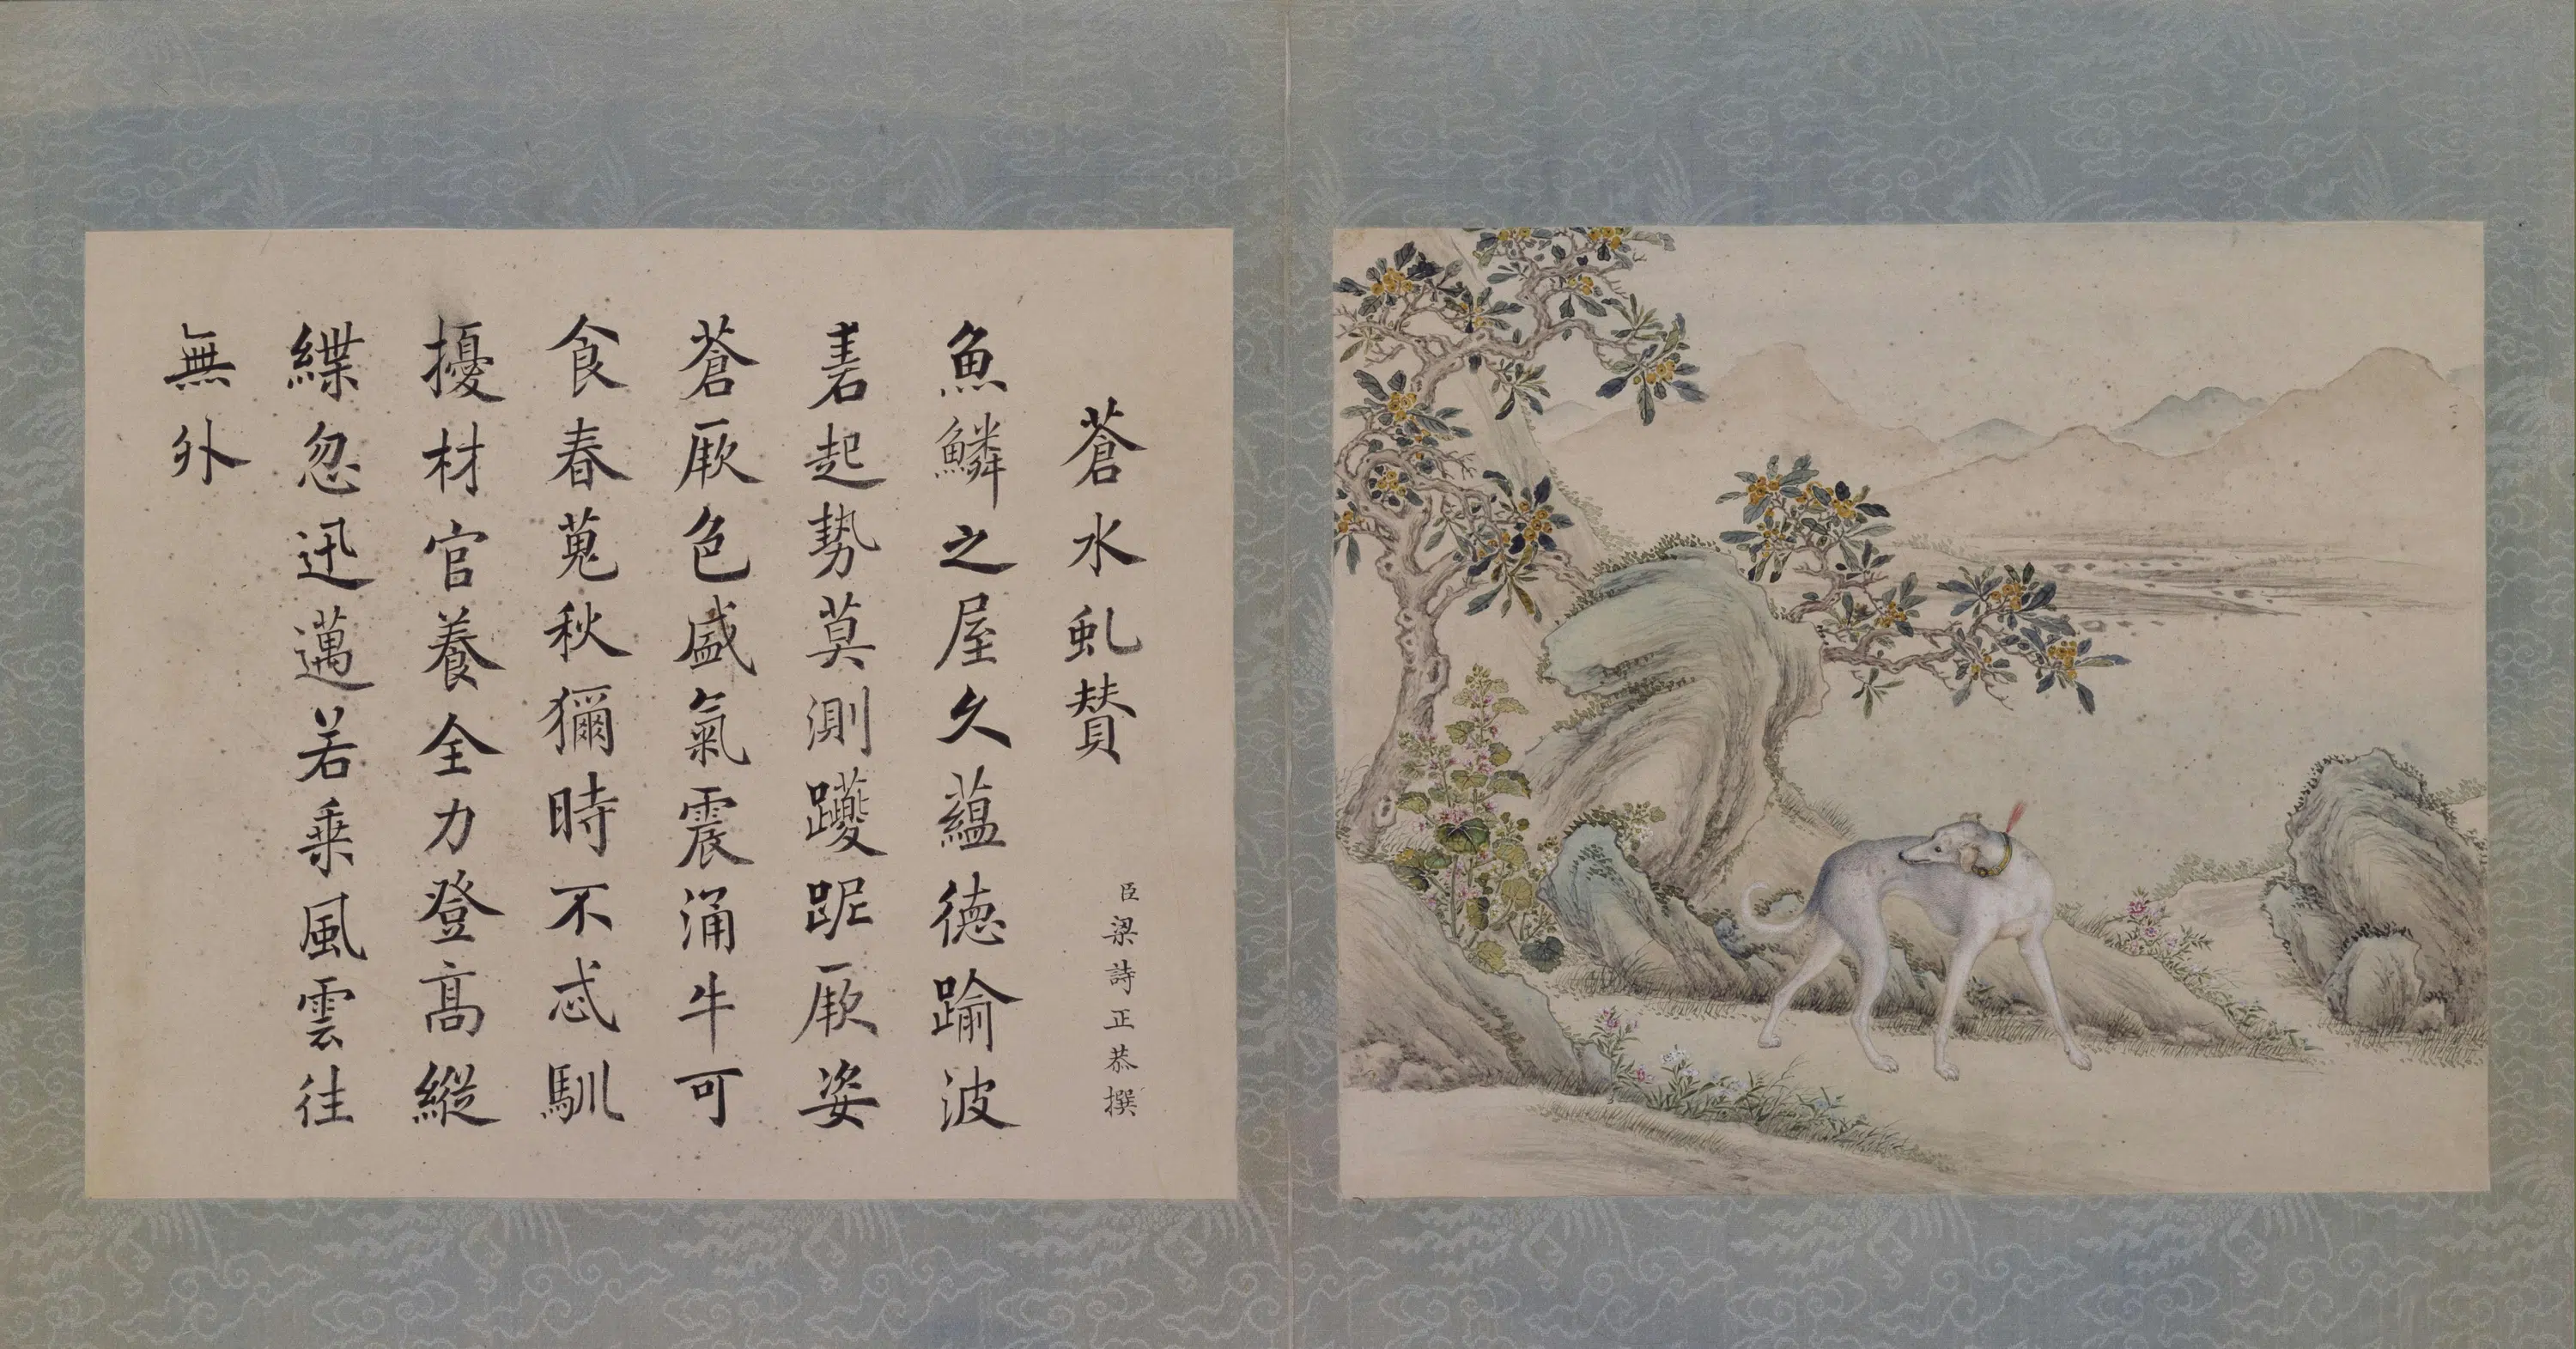 蒼水虬賛
臣梁詩正恭撰
魚鱗之屋久蘊德踰波
砉起勢莫測躨跜厥姿
蒼厥色盛氣震涌牛可
食春蒐秋獮時不忒馴
擾材官養全力登髙縱
緤忽迅邁若乗風雲往
無外